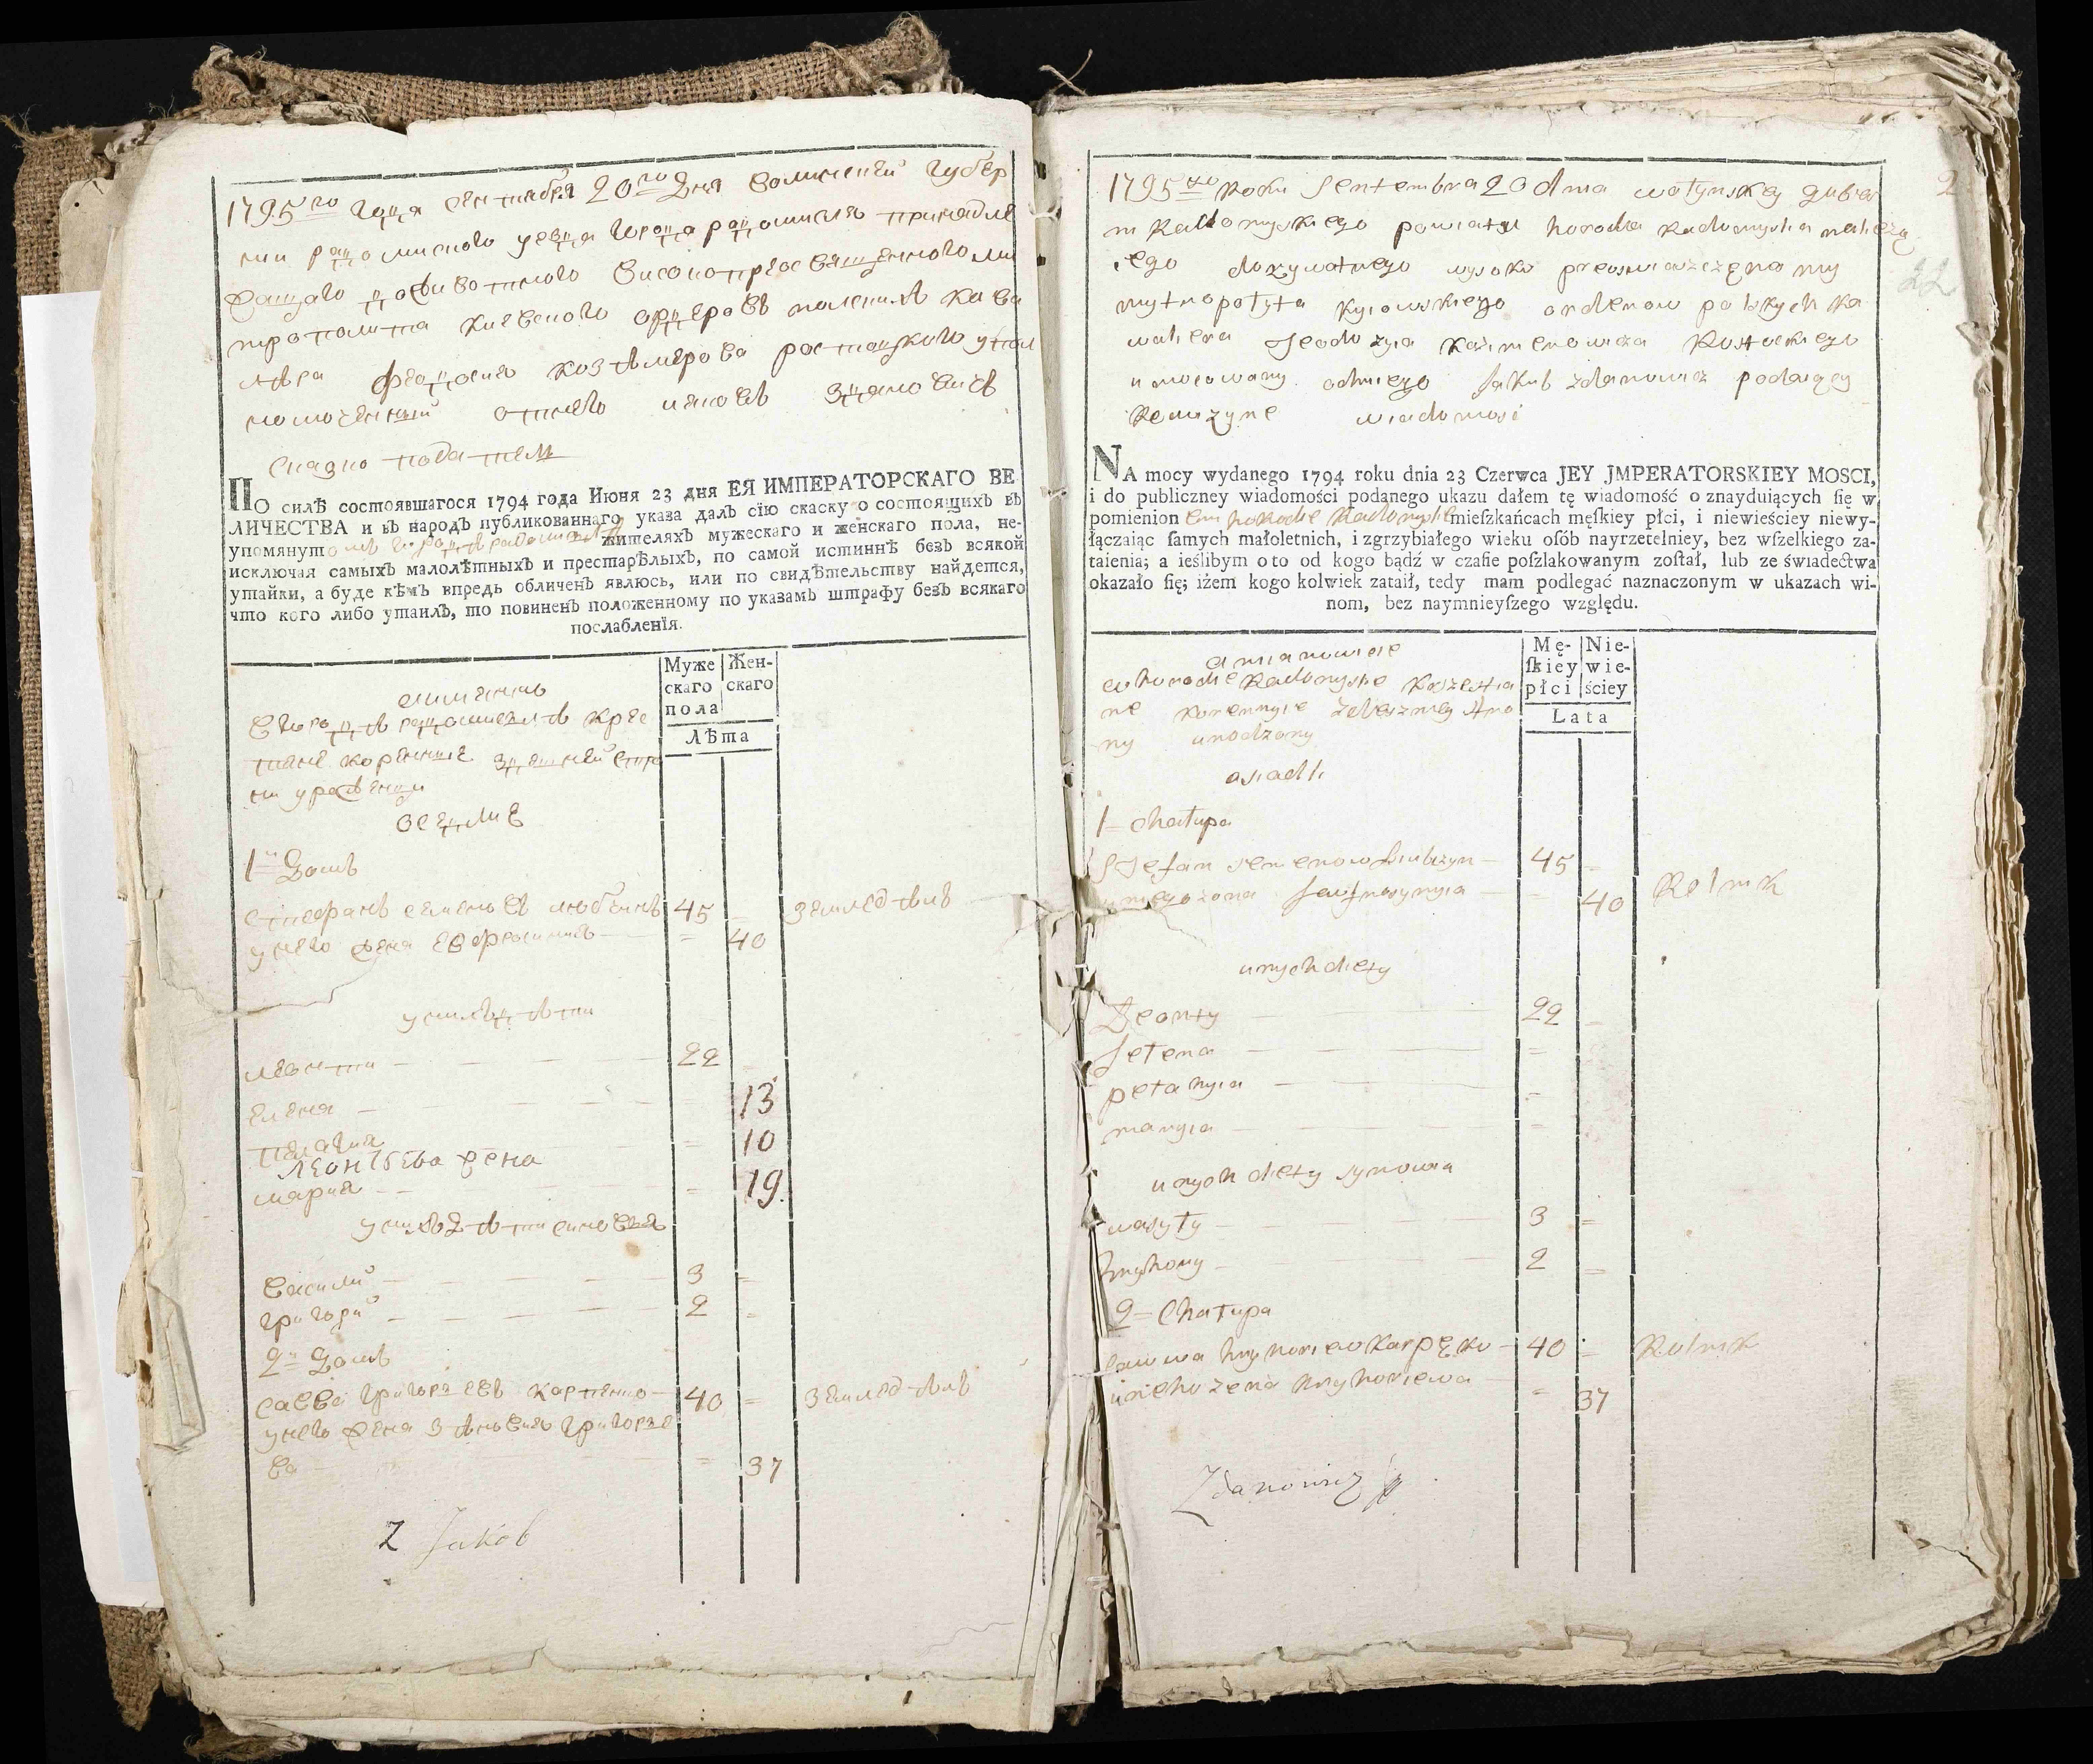 1795го года сентября 20го Дня волинский губер
нии радомиского уезда города радомисля принадле
жащаго доживотного високопреосвященного ми
трополита киевского ордеровъ полскихъ кава
лѣра феодосия козѣмерова ростоцкого упол
номоченний отнегоияковъ здановичъ
сказко подателъ
ПО силѣ состоявшагося 1794 года Июня 23 дня ЕЯ ИМПЕРАТОРСКАГО ВЕ-
ЛИЧЕСТВА и въ народъ публикованнаго указа далъ сїю скаску о состоящихъ въ
упомянутомъ городѣ радомислѣ жителяхъ мужескаго и женскаго пола, не-
исключая самыхъ малолѣтныхъ и престарѣлыхъ, по самой истиннѣ безъ всякой
утайки, а буде кѣмъ впредь обличенъ явлюсь, или по свидѣтельству найдется,
что кого либо утаилъ, то повиненъ положенному по указамъ штрафу безъ всякаго
послабленїя.
Муже
скаго
пола
Жен-
скаго
Лѣта
аимянно
вгородѣ радомислѣ кресе
тяне коренние здешней сторо
ни урожении
оседлие
1й Домъ
стефанъ семеновъ любчинъ 45 = земледѣлъ
унего жена евфросиния = 40
унихъ дѣти
леонти 22
елена 13
пелагия = 10
леонтьева жена
мария = 19
унихъ дѣти синовя
василий 3 =
григорий 2 =
2й Домъ
савва григориевъ карпенко 40 = земледѣлъ
унего жена зѣновия григорие
ва = 37
Z Jakob
1795go Roku Septembra 20 dnia wołynskey guber
ni Radomyskiego powiatu horoda Radomysla należą
cego dożywotnego wysoko preoswiaszczęnnomy
mytropołyta Kyiowskiego orderow polskych ka
walera Feodozyia Kazimerowicza Rostockiego
umocowany odniego Jakub Zdanowicz podaięcy
Rewizyne wiadomosć
2
22
NA mocy wydanego 1794 roku dnia 23 Czerwca JEY JMPERATORSKIEY MOSCI,
i do publiczney wiadomości podanego ukazu dałem tę wiadomość o znayduiących ſię w
pomienionem horodie Radomyslu mieſzkańcach męſkiey płci, i niewieściey niewy-
łączaiąc ſamych małoletnich, i zgrzybiałego wieku osób nayrzetelniey, bez wſzelkiego za-
taienia; a ieślibym oto od kogo bądź w czaſie poſzlakowanym zoſtał, lub ze świadectwa
okazało ſię; iżem kogo kolwiek zataił, tedy mam podlegać naznaczonym w ukazach wi-
nom, bez naymnieyſzego względu.
Mę-
ſkiey
płci
Nie-
wie-
ściey
Lata
amianowicie
whorodie Radomysle Krzestia
ne korennyie zdeszniey stro
ny urodzony
osiadli
1 = chałupa
Stefan Semenow Lubczyn 45 = Rolnik
uniego żona Jewfrosynyia = 40
unych diety
Leonty 22 =
Jełena =
pełahyia =
maryia =
unych diety synowia
wasyły 3 =
hryhory 2 =
2 = Chałupa
sawwa hryhoriew karpęko 40 = Rolnik
unieho żena hryhoriewa = 37
Zdanowicz